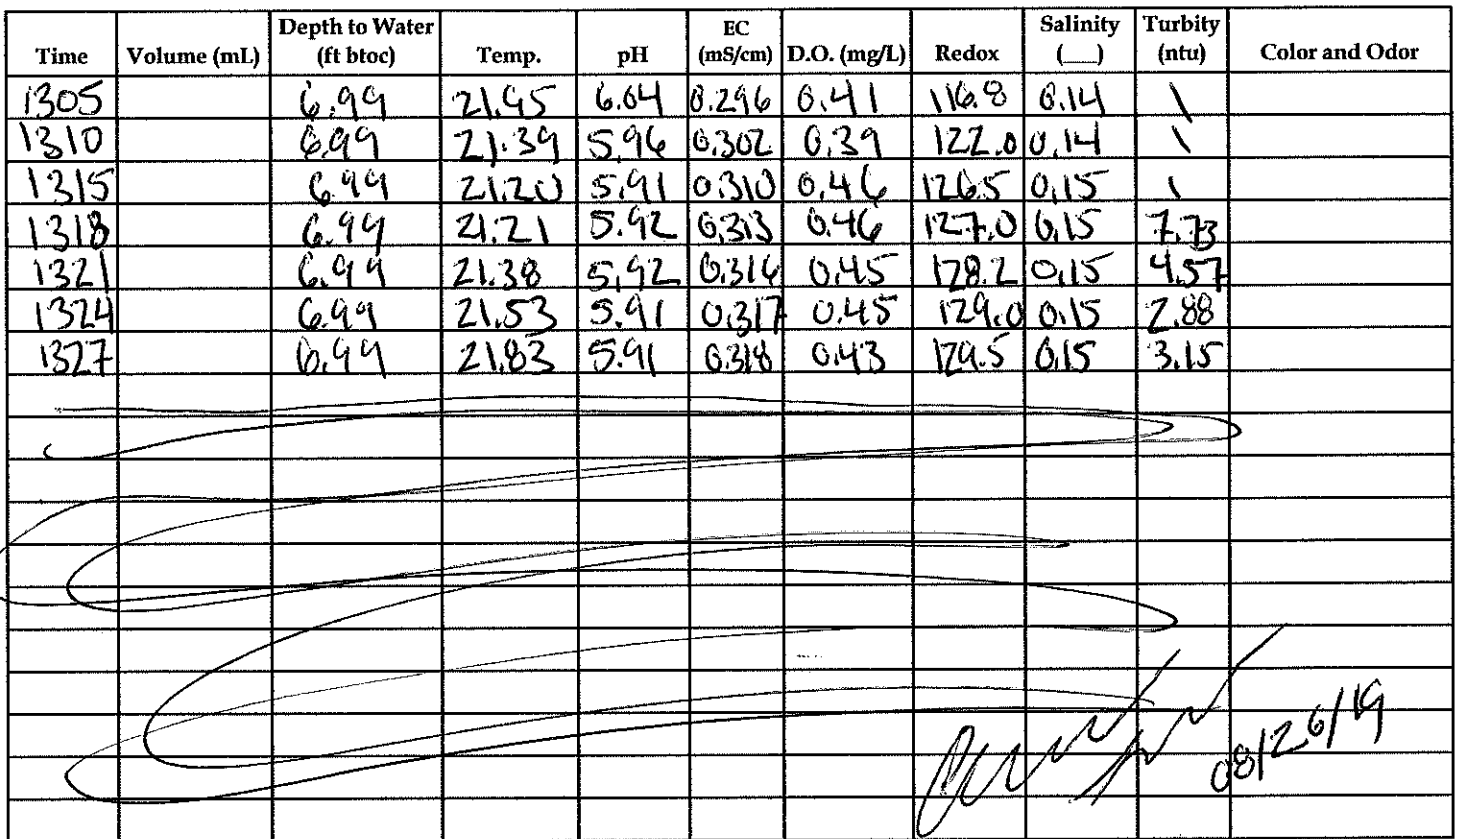 Time Volume (mL) Depth to Water (ft btoc) Temp. pH EC (mS/cm) D.O. (mg/L) Redox Salinity (___) Turbity (ntu) Color and Odor
1305 6.99 21.45 6.04 0.296 0.41 116.8 0.14 \
1310 6.99 21.39 5.96 0.302 0.39 122.0 0.14 \
1315 6.99 21.20 5.91 0.310 0.46 126.5 0.15 \
1318 6.99 21.21 5.92 0.313 0.46 127.0 0.15 7.73
1321 6.99 21.38 5.92 0.316 0.45 128.2 0.15 4.57
1324 6.99 21.53 5.91 0.317 0.45 129.0 0.15 2.88
1327 6.99 21.83 5.91 0.318 0.43 129.5 0.15 3.15
08/26/19